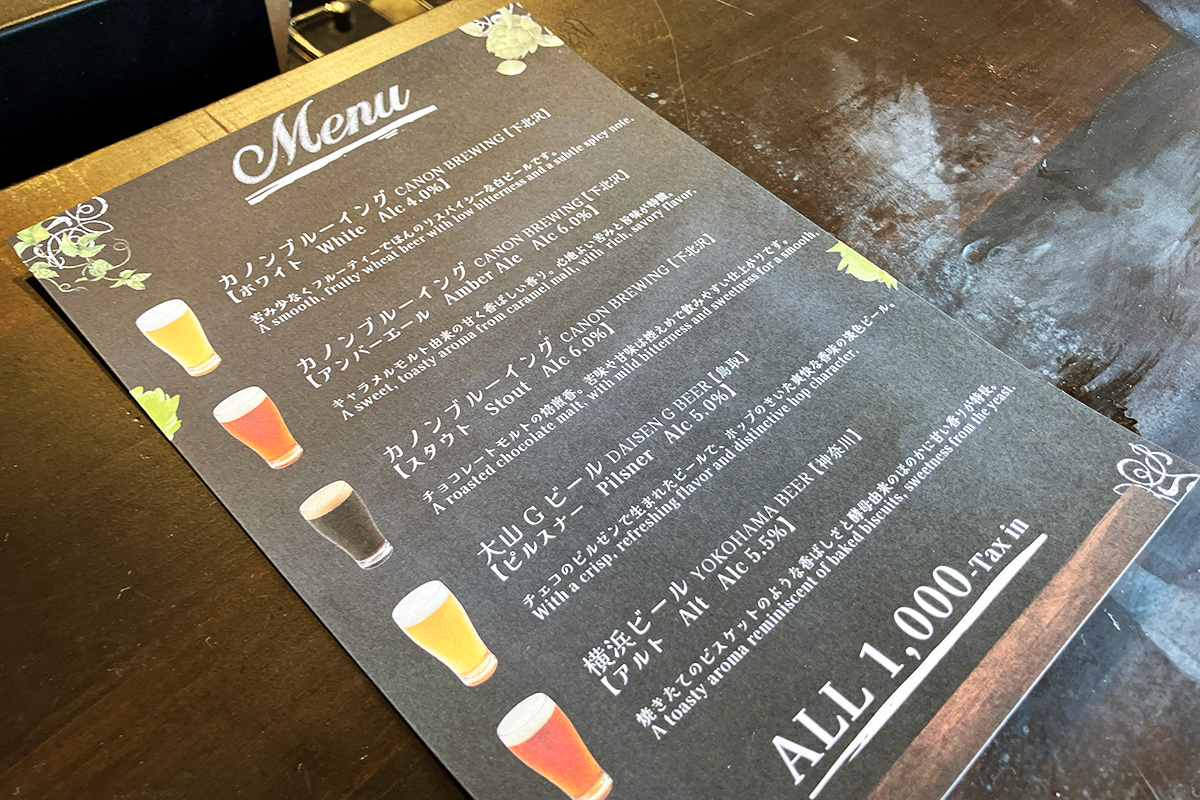 Menu
カノンブルーイング CANON BREWING【下北沢】
【ホワイト White Alc 4.0%】
苦み少なくフルーティーでほんのりスパイシーな白ビールです。
A smooth, fruity wheat beer with low bitterness and a subtle spicy note.
カノンブルーイング CANON BREWING【下北沢】
【アンバーエール Amber Ale Alc 6.0%】
キャラメルモルト由来の甘く香ばしい香り。心地よい苦みと旨味が特徴。
A sweet, toasty aroma from caramel malt, with rich, savory flavor.
カノンブルーイング CANON BREWING【下北沢】
【スタウト Stout Alc 6.0%】
チョコレートモルトの焙煎香。苦味や甘味は控えめで飲みやすい仕上がりです。
A roasted chocolate malt, with mild bitterness and sweetness for a smooth
大山Gビール DAISEN G BEER【鳥取】
【ピルスナー Pilsner Alc 5.0%】
チェコのピルゼンで生まれたビールで、ホップのきいた爽快な香味の淡色ビール。
With a crisp, refreshing flavor and distinctive hop character.
横浜ビール YOKOHAMA BEER【神奈川】
【アルト Alt Alc 5.5%】
焼きたてのビスケットのような香ばしさと酵母由来のほのかに甘い香りが特長。
A toasty aroma reminiscent of baked biscuits, sweetness from the yeast.
ALL 1,000-Tax in